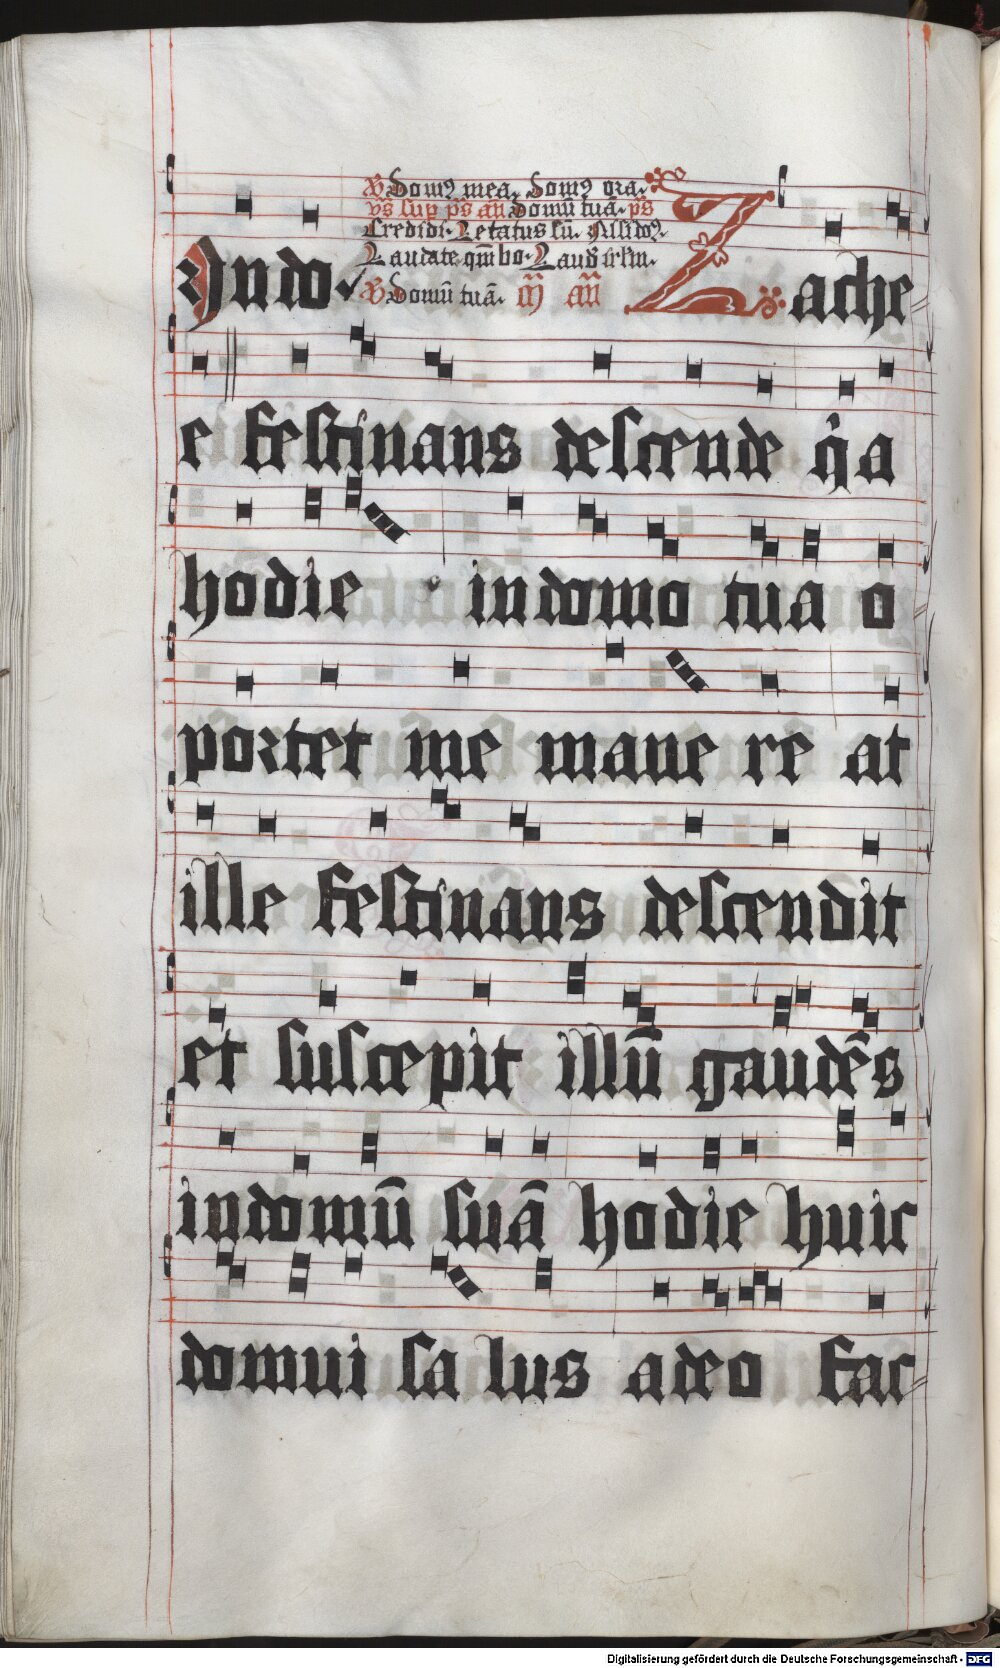 ℣ domꝯ mea. domꝯ ora.
vs̄ sup ps̄ an̄ domū tuā. ps̄
Credidi. Letatus sū. Nisi dn̄s.
Laudate qm̄ bo. Lauda irlm̄.
℣ domū tuā. m̄ an̄
In do Zache
e festinans descende qͥa
hodie in domo tua o
portet me mane re at
ille festinans descendit
et suscepit illū gaudēs
in domū suā hodie huic
domui sa lus a deo fac
Digitalisierung gefördert durch die Deutsche Forschungsgemeinschaft - DFG